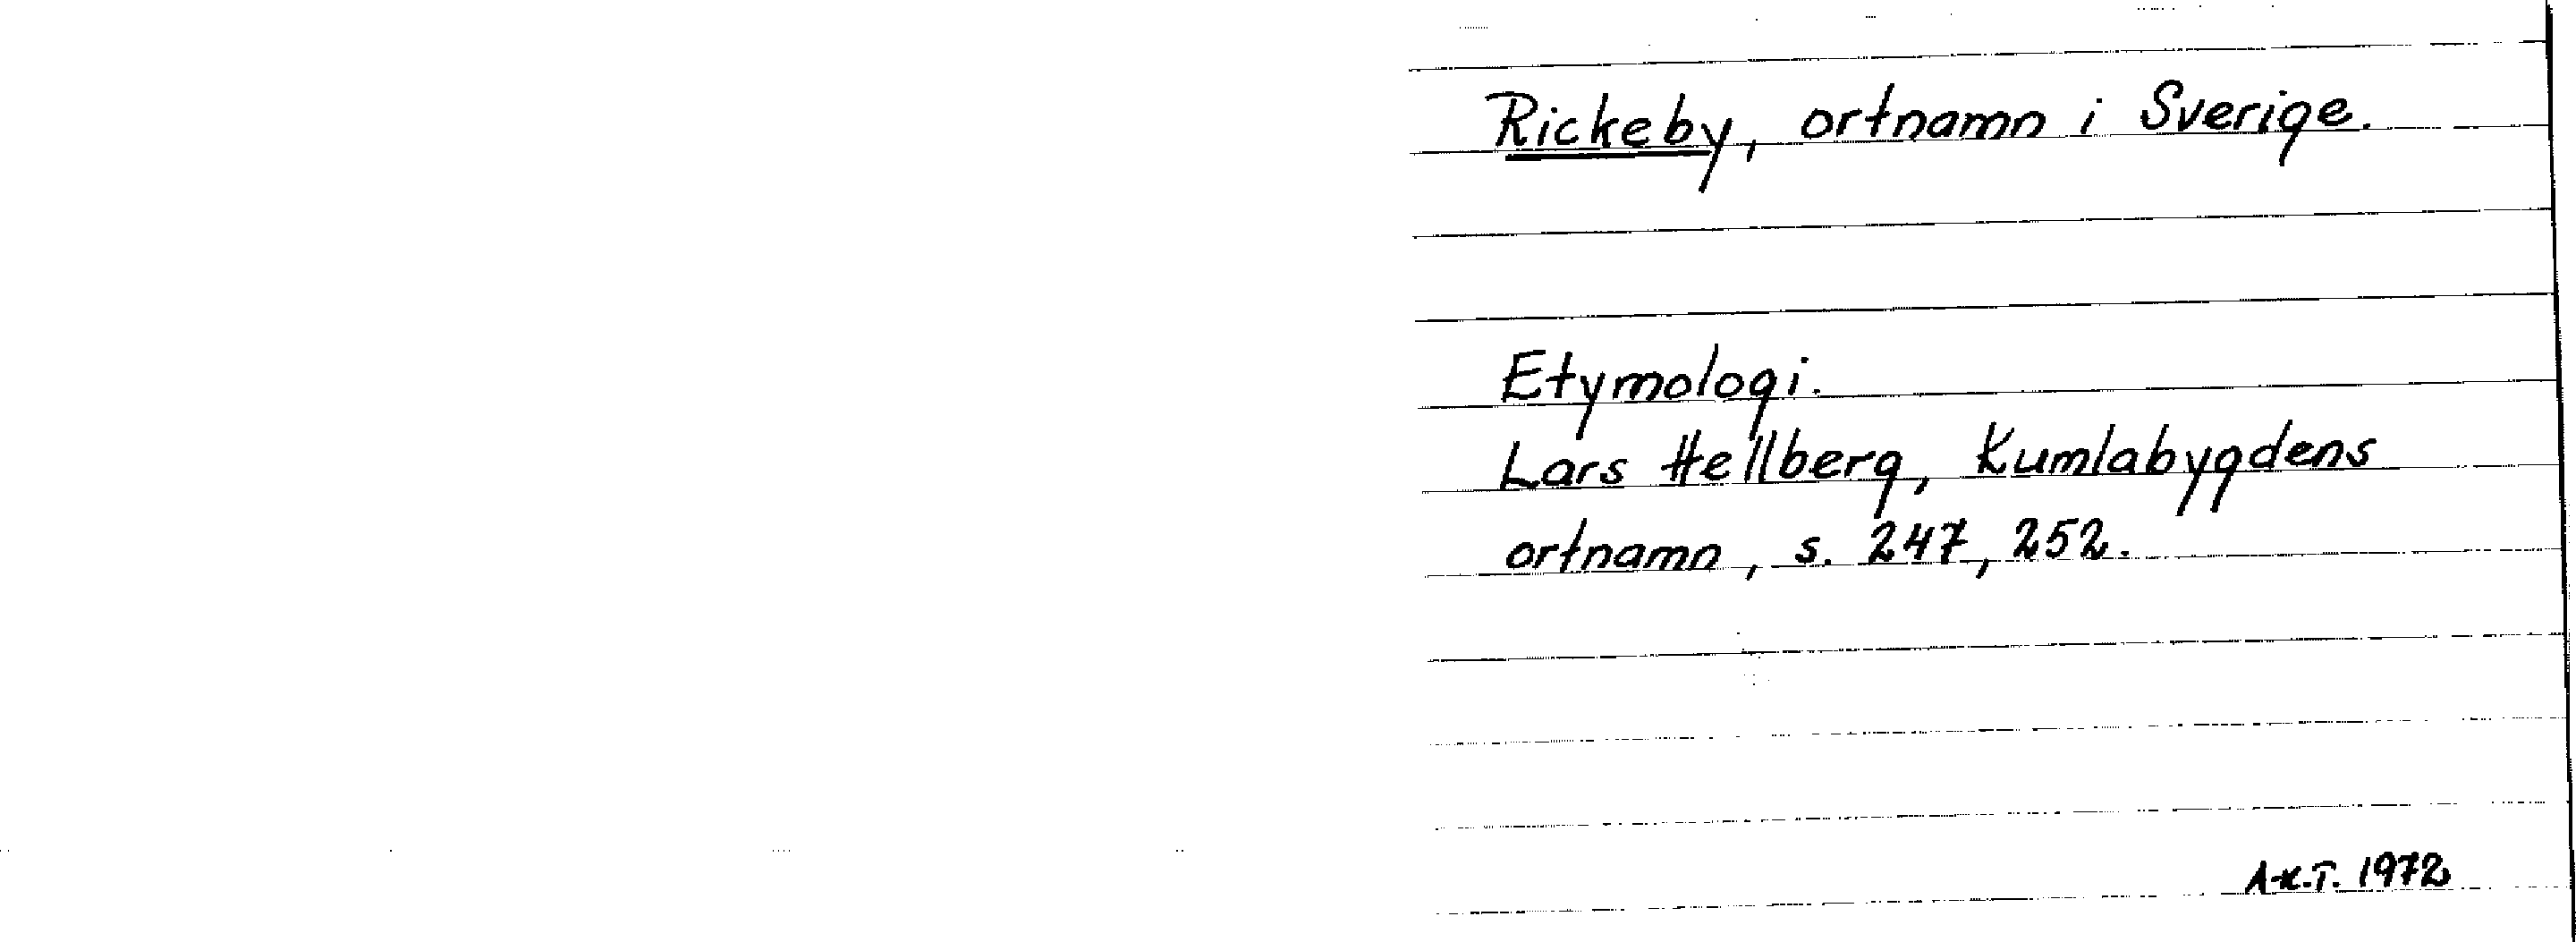 Rickeby, ortnamn i Sverige.
Etymologi.
Lars Hellberg, Kumlabygdens
ortnamn, s. 247, 252.
A-K.T. 1972